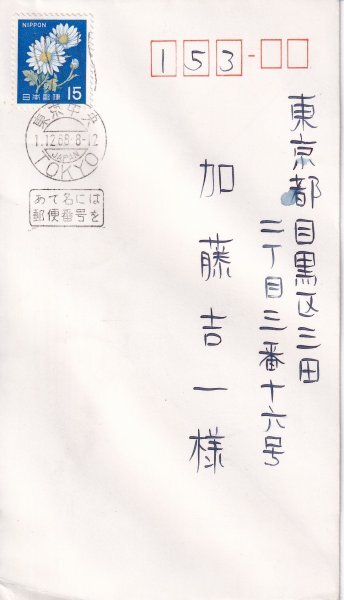 NIPPON
日本郵便 15
東京中央
1.12.68 8-12
JAPAN
TOKYO
あて名には
郵便番号を
153
東京都目黒区三田
二丁目三番十六号
加藤吉一様